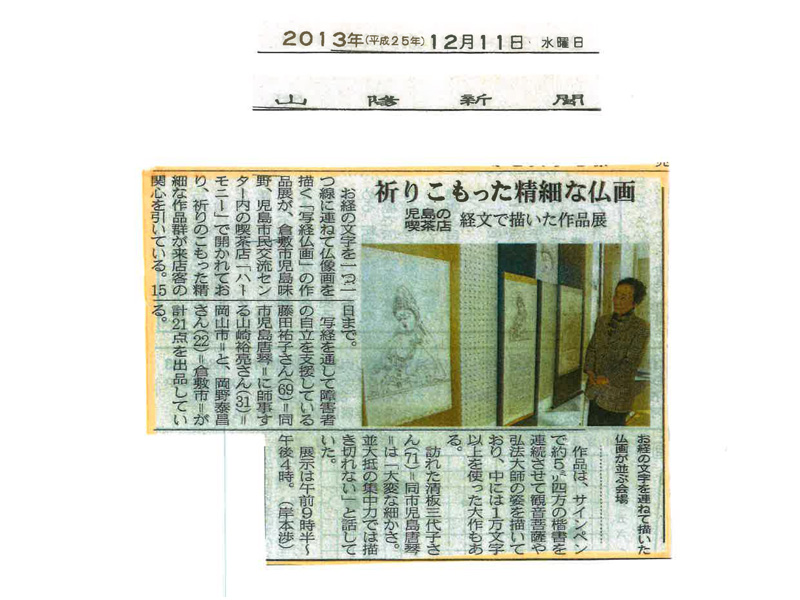 2013年(平成25年)12月11日 水曜日
山陽新聞
祈りこもった精細な仏画
児島の
喫茶店
経文で描いた作品展
お経の文字を一つ一
つ線に連ねて仏像画を
描く「写経仏画」の作
品展が、倉敷市児島味
野、児島市民交流セン
ター内の喫茶店「ハー
モニー」で開かれてお
り、祈りのこもった精
細な作品群が来店客の
関心を引いている。15
日まで。
写経を通して障害者
の自立を支援している
藤田祐子さん(69)=同
市児島唐琴=に師事す
る山崎裕亮さん(31)=
岡山市=と、岡野泰昌
さん(22)=倉敷市=が
計21点を出品してい
る。
お経の文字を連ねて描いた
仏画が並ぶ会場
作品は、サインペン
で約5㍉四方の楷書を
連続させて観音菩薩や
弘法大師の姿を描いて
おり、中には1万文字
以上を使った大作もあ
る。
訪れた清板三代子さ
ん(71)=同市児島唐琴
=は「大変な細かさ。
並大抵の集中力では描
き切れない」と話して
いた。
展示は午前9時半～
午後4時。(岸本渉)